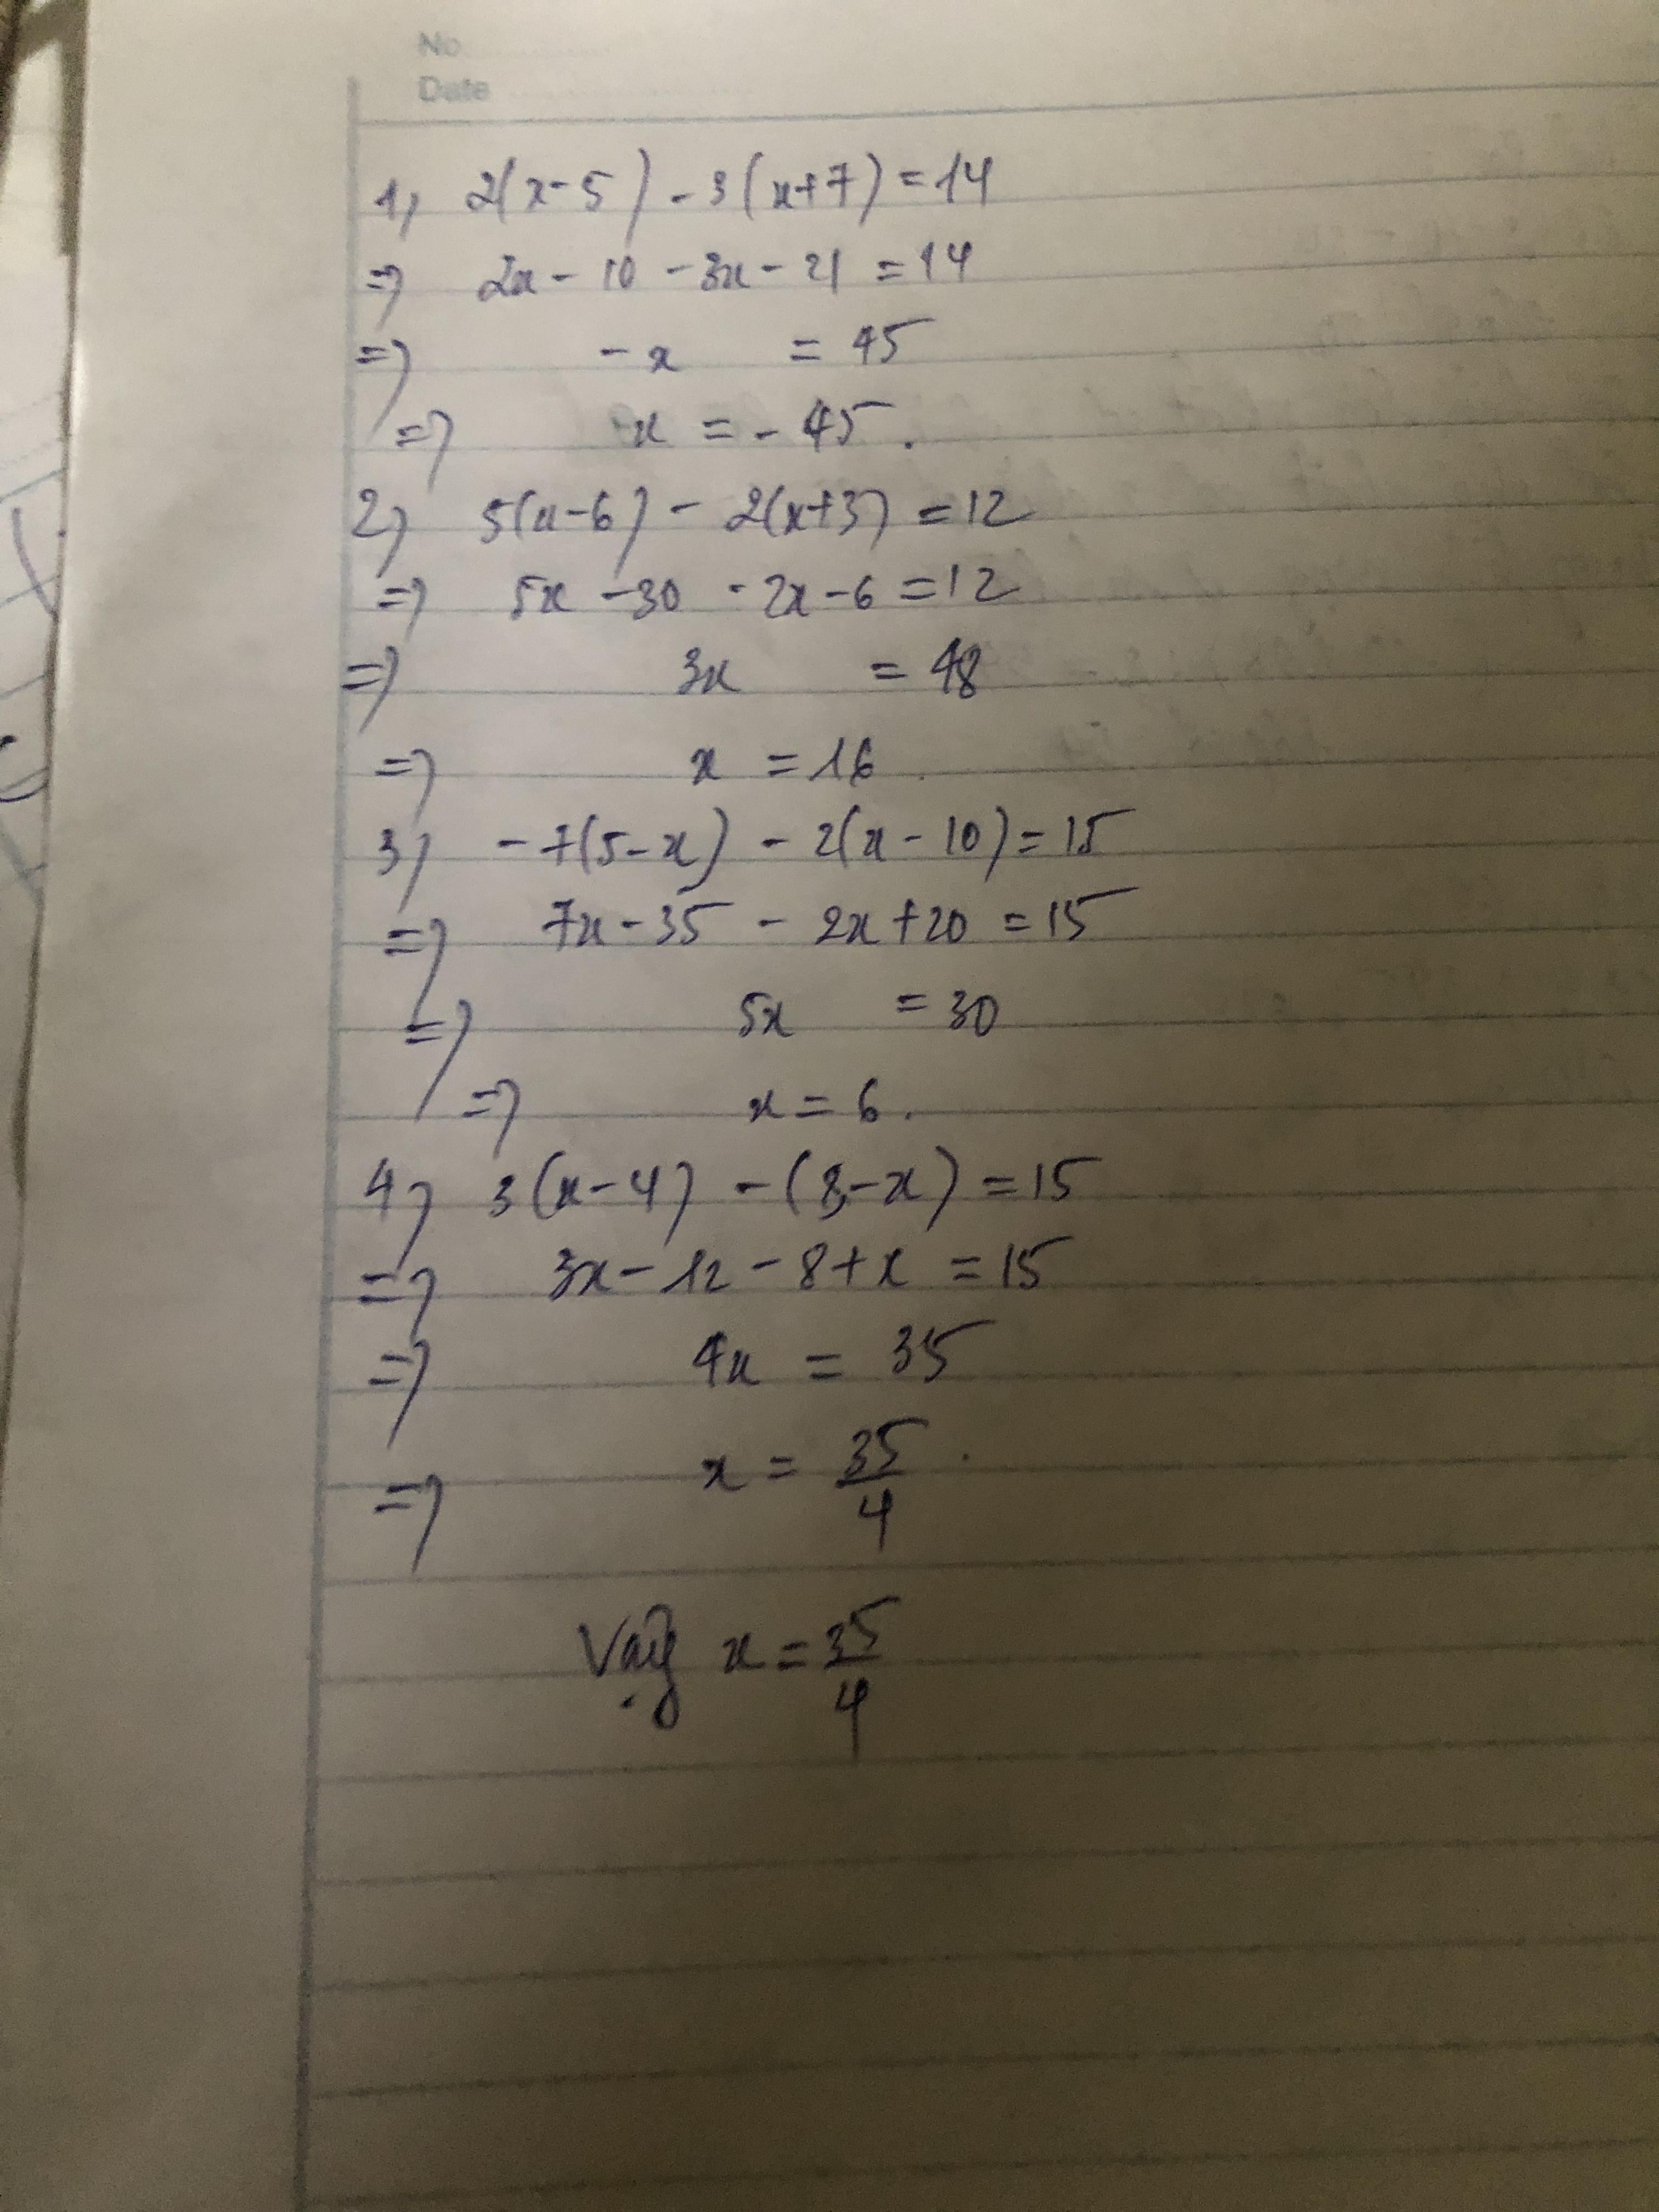 No
Date
1) 2(x-5) - 3(x+7) = 14
=> 2x - 10 - 3x - 21 = 14
=> -x = 45
=> x = -45.
2) 5(x-6) - 2(x+3) = 12
=> 5x - 30 - 2x - 6 = 12
=> 3x = 48
=> x = 16.
3) -7(5-x) - 2(x-10) = 15
=> 7x - 35 - 2x + 20 = 15
=> 5x = 30
=> x = 6.
4) 3(x-4) - (8-x) = 15
=> 3x - 12 - 8 + x = 15
=> 4x = 35
=> x = 35/4.
Vậy x = 35/4